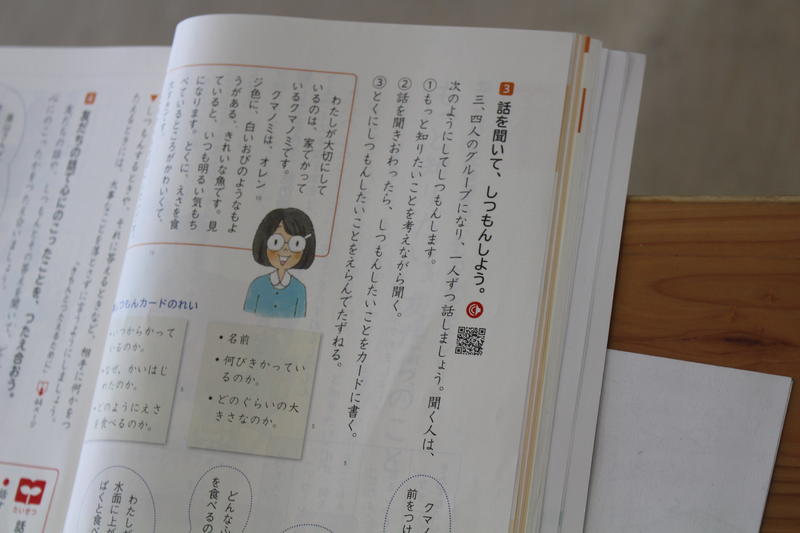 3 話を聞いて、しつもんしよう。
三、四人のグループになり、一人ずつ話しましょう。聞く人は、
次のようにしてしつもんします。
①もっと知りたいことを考えながら聞く。
②話を聞きおわったら、しつもんしたいことをカードに書く。
③とくにしつもんしたいことをえらんでたずねる。
わたしが大切にして
いるのは、家でかって
いるクマノミです。
クマノミは、オレン
ジ色に、白いおびのようなもよ
うがある、きれいな魚です。見
ていると、いつも明るい気もち
になります。とくに、えさを食
べているところがかわいくて、
大すきです。
10
しつもんカードのれい
・名前
・何びきかってい
るのか。
・どのぐらいの大
きさなのか。
・いつからかって
いるのか。
・なぜ、かいはじ
めたのか。
・どのようにえさ
を食べるのか。
5
クマノ
前をつけ
どんなふ
を食べるの
わたしが
水面に上が
ぱくと食べ
4 友だちの話で心にのこったことを、つたえ合おう。
たいせつ